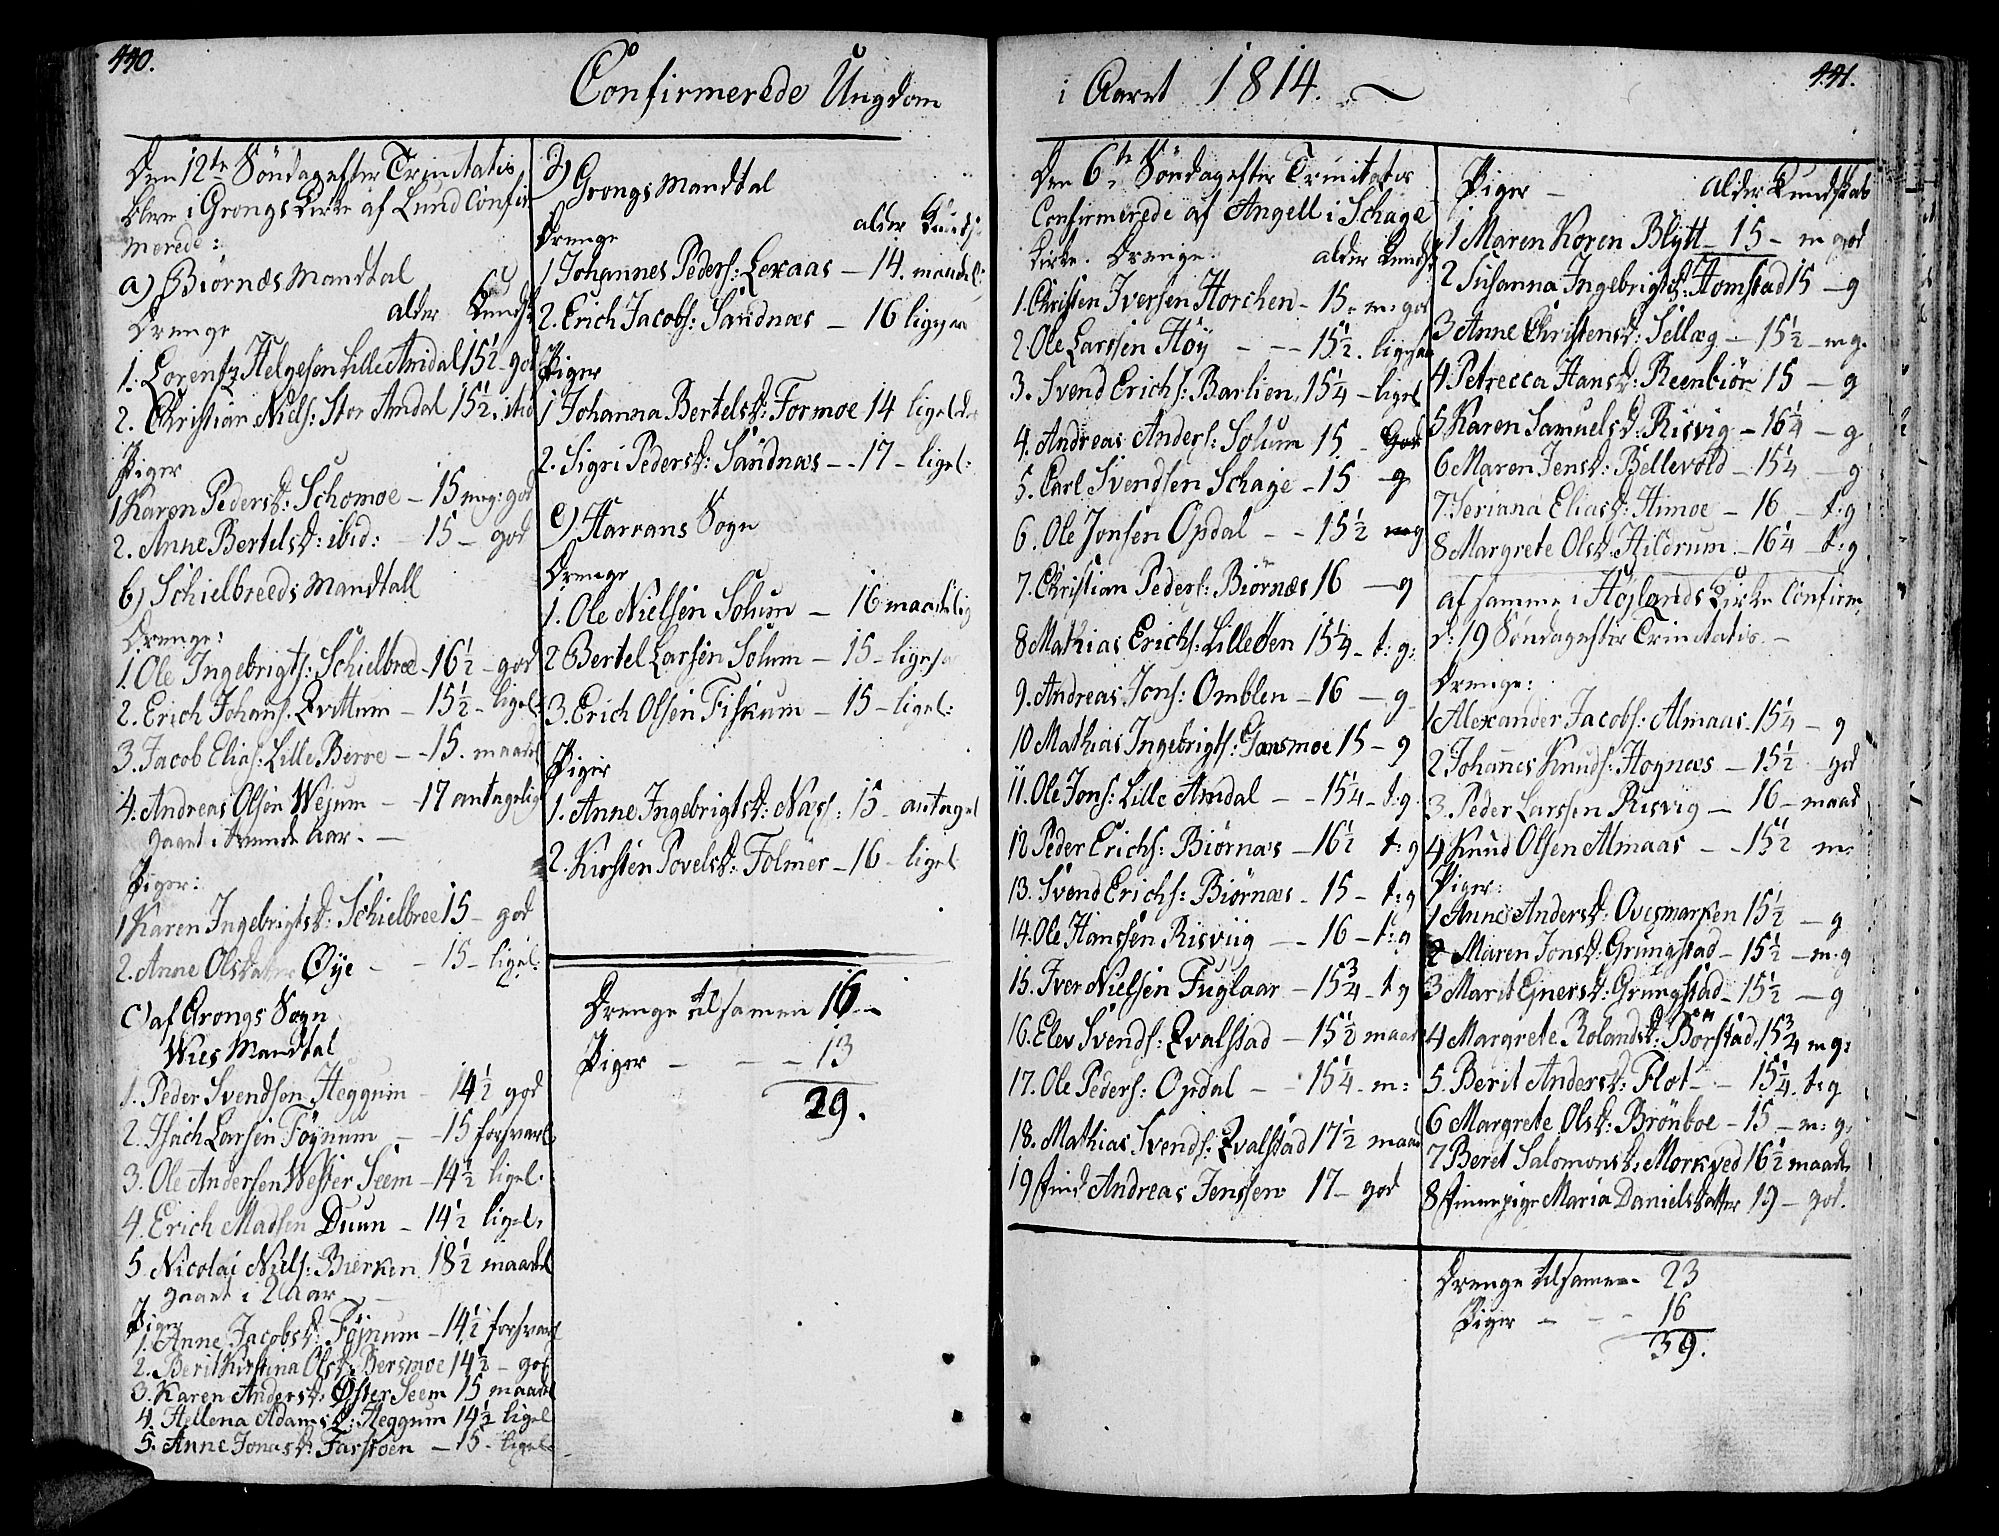 440.
Confirmerede Ungdom
Den 12te Söndag efter Trinitatis
bleve i Grongs Kirke af Lund Confir
merede:
a) Biørnæs Mandtal
Drenge alder Kundsk
1. Lorentz Helgesen Lille Amdal 15½ - god
2. Christian Niels: Stor Amdal 15½. itid
Piger
1 Karen Pedersd: Schomoe - 15 meg: god
2. Anne Bertelsd: ibid: - 15 - god
b) Schielbreds Mandtall
Drenge:
1. Ole Ingebrigts: Schielbred - 16½ - god
2. Erich Johans. Qvittum - 15½ - ligel:
3. Jacob Elias: Lille Berre - - 15. maadel
4. Andreas Olsen Wejum - - 17 antagelig
gaaet i trende Aar. -
Piger:
1 Karen Ingebrigtsd: Schielbree 15 - god
2. Anne Olsdatter Øye - - 15 - ligel:
c) af Grongs Sogn
Wies Mandtal
1. Peder Svendsen Heggum - 14½ god
2. Isach Larsen Föynum - - 15 forsvarl.
3. Ole Andersen Wester Seem - 14½ ligel.
4. Erich Madsen Duun - 14½ ligel.
5. Nicolai Niels: Bierken 18½ maadel
gaaet i 2 Aar -
Piger
1. Anne Jacobsd: Föjnum - 14½ forsvarl
2. Berit Kirstina Olsd: Bersmoe 14½ - god
3. Karen Andersd: Øster Seem 15 maadel
4. Hellena Adamsd: Heggum 14½ ligel
5. Anne Jonasd: Farstoen - 15 - ligel
d) Grongs Mandtal
Drenge alder Kundsk:
1 Johannes Peders: Lexaas - 14. maadel:
2. Erich Jacobs: Sandnæs - 16 ligesaa
Piger
1 Johanna Bertelsd: Formoe 14 ligeledes
2. Sigri Pedersd: Sandnæs - - 17 - ligel:
e) Harrans Sogn
Drenge
1. Ole Nielsen Solum - 16 maadelig
2 Bertel Larsen Solum - 15 - ligesaa
3. Erich Olsen Fiskum - 15 - ligel:
Piger
1. Anne Ingebrigtsd: Næss: 15 - antagel
2. Kirsten Povelsd: Folmer - 16 - ligel
Drenge tilsamen 16 -
Piger - - - 13
29.
i Aaret 1814. -
441.
Den 6te Söndag efter Trinitatis
Confirmerede af Angell i Schage
Kirke. Drenge. alder Kundsk
1. Christen Iversen Horchen - 15 - m: god
2. Ole Larssen Höy - - - 15½. ligesaa
3. Svend Erichs: Barlien. 15¼ - ligel
4. Andreas Anders: Solum 15 - God
5. Carl Svendsen Schage - 15 - g
6. Ole Jonsen Opdal - - 15½ mg
7. Christian Peders: Biørnæs 16 - g
8 Mathias Erichs: Lilleöen 15¼ - t: g:
9. Andreas Jons: Omblen - 16 - g
10 Mathias Ingebrigts: Gansmoe 15 - g
11. Ole Jons: Lille Amdal - - 15¼ - t: g.
12 Peder Erichs: Biørnæs - 16½ t: g
13. Svend Erichs: Biørnæs - 15 - t: g
14. Ole Hanssen Risviig - - 16 - t: g
15. Iver Nielsen Fuglaar - 15¾ - t: g
16. Elev Svends: Qvalstad - 15½ maad
17. Ole Peders: Opdal - - 15¼ - m:
18. Mathias Svends: Qvalstad 17½ maad
19 find Andreas Jenssen 17 - god
Piger - alder Kundskab
1 Maren Koren Blÿtt - 15 - m god
2 Susanna Ingebrigtsd: Homstad 15 - g
3 Anne Christensd: Sellæg - 15½ - m g.
4 Petrecca Hansd: Reenbiör 15 - g
5 Karen Samuelsd: Risvig - 16¼ - g
6 Maren Jensd: Bellevold - 15¼ - g
7 Seriana Eliasd: Himoe - 16 - t: g
8 Margrete Olsd: Hildrum - 16¼ - t: g
af samme i Höjlands Kirke Confirm.
d: 19 Söndag efter Trinitatis. -
Drenge:
1 Alexander Jacobs: Almaas - 15¼ - g
2 Johanes Knuds: Hognæs - 15½ god
3. Peder Larssen Risvig - 16 - maad
4 Knud Olsen Almaas - - 15½ m:
Piger:
1 Anne Andersd: Ovesmarken 15½ - g
2 Maren Jonsd: Grungstad - 15½ - m. g
3 Marit Ejnersd: Grungstad - 15½ - g
4 Margrete Rolandsd: Börstad. 15¾ m g:
5. Berit Andersd: Flot - - 15¼. t: g
6 Margrete Olsd: Brönboe - 15 - m: g.
7 Beret Salomonsd: Morkved 16½ maadl
8 finnepige Maria Danielsdatter 19 - god.
Drenge tilsamen - 23
Piger - - - 16
39.